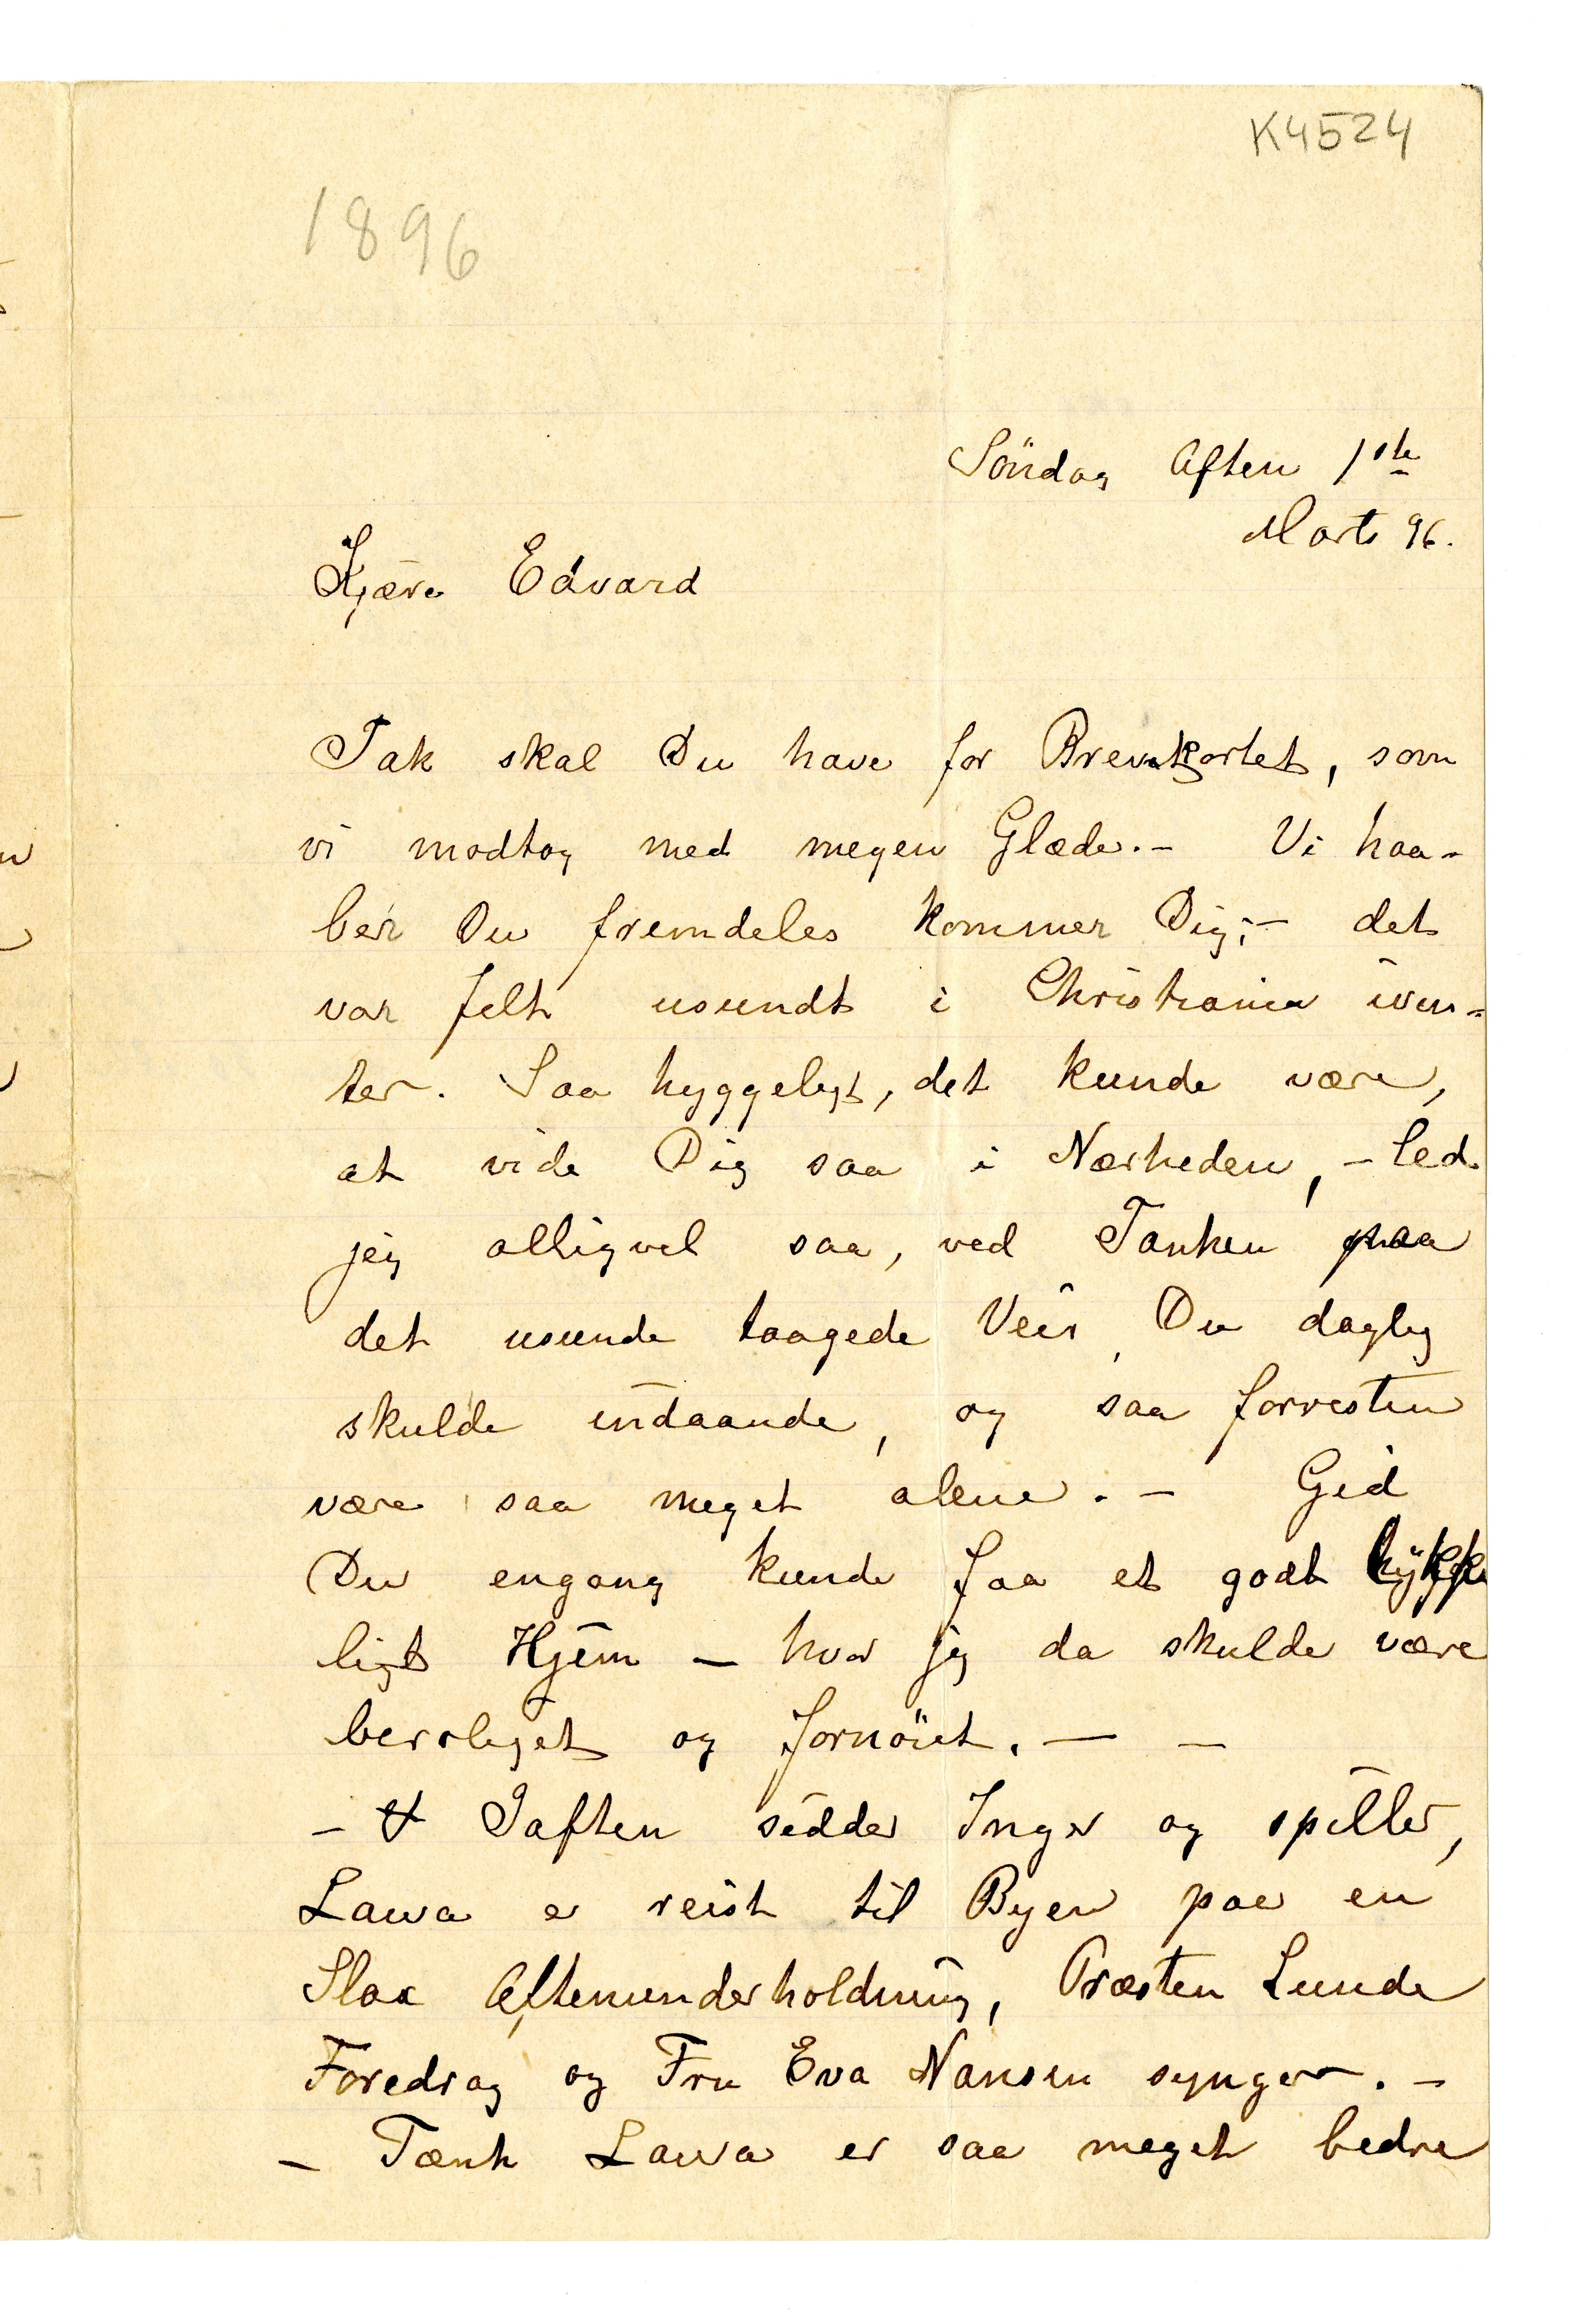 K4524
1896
Söndag Aften 1ste
Marts 96.
Kjære Edvard
Tak skal Du have for Brevkortet, som
vi modtog med megen Glæde.- Vi haa-
ber Du fremdeles kommer Dig;- det
var felt usundt i Christiania ivin-
ter. Saa hyggeligt, det kunde være,
at vide Dig saa i Nærheden, - led
jeg alligvel saa, ved Tanken paa
det usunde taagede Veir, Du daglig
skulde indaande, og saa forresten
være saa meget alene. - Gid
Du engang kunde faa et godt
ligt Hjem - hvor jeg da skulde være
beroliget og fornöiet. - -
- Iaften sidder Inger og spiller,
Laura er reist til Byen paa en
Slax Aftenunderholdning, Præsten Lunde
Foredrag og Fru Eva Nansen synger. -
- Tænk Laura er saa meget bedre